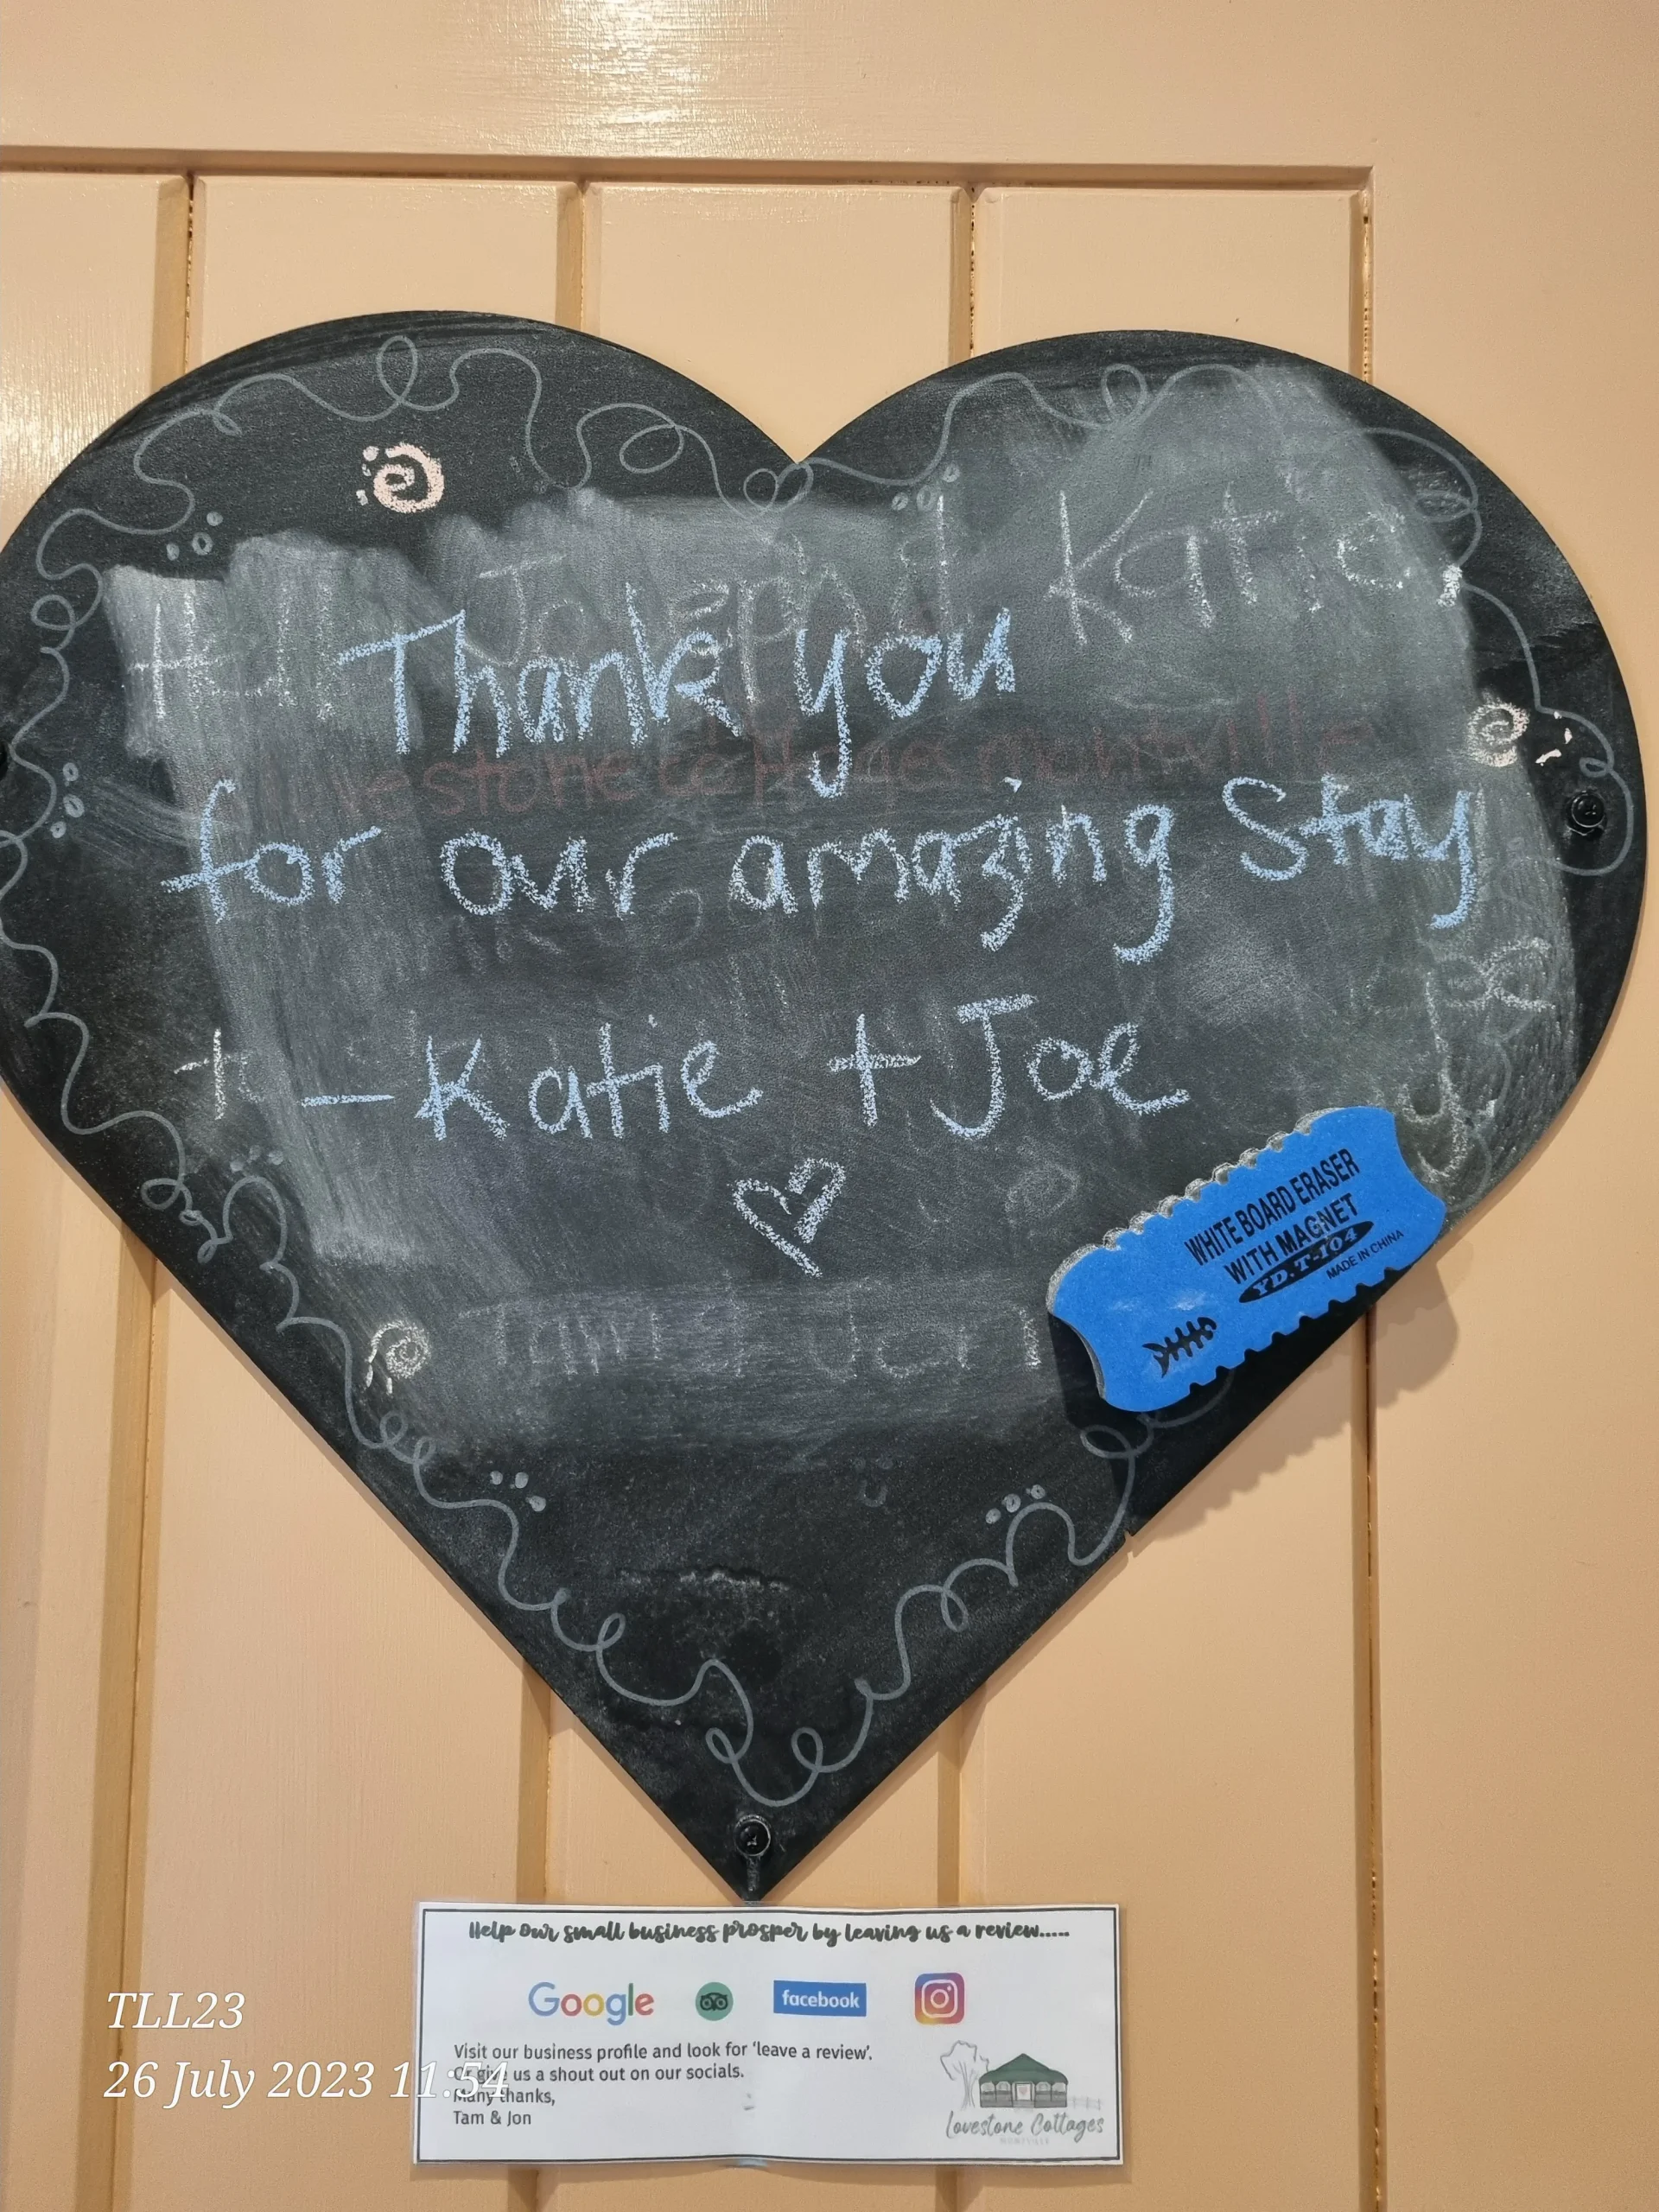 Joseph & Katie,
Thank you
Lovestone cottages montville
for our amazing Stay
- Katie + Joe
WHITE BOARD ERASER
WITH MAGNET
YD. T-104
MADE IN CHINA
Help our small business prosper by leaving us a review.....
Google
facebook
Visit our business profile and look for 'leave a review'.
Or give us a shout out on our socials.
Many thanks,
Tam & Jon
Lovestone Cottages
MONTVILLE
TLL23
26 July 2023 11:54